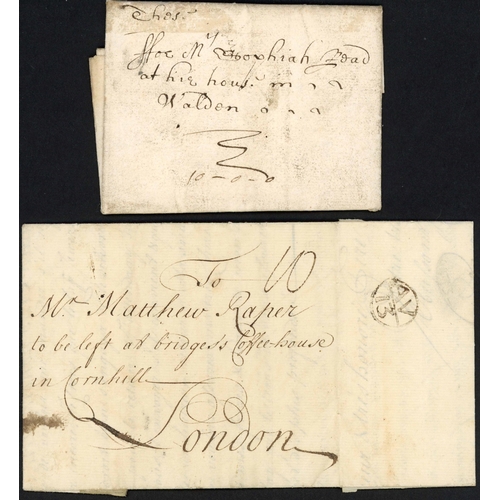 Thes
ffor Mr Read
at his house in
Walden
10-0-0
To 10
Mr Matthew Raper
to be left at bridges's Coffee-house
in Cornhill
London
AV
13